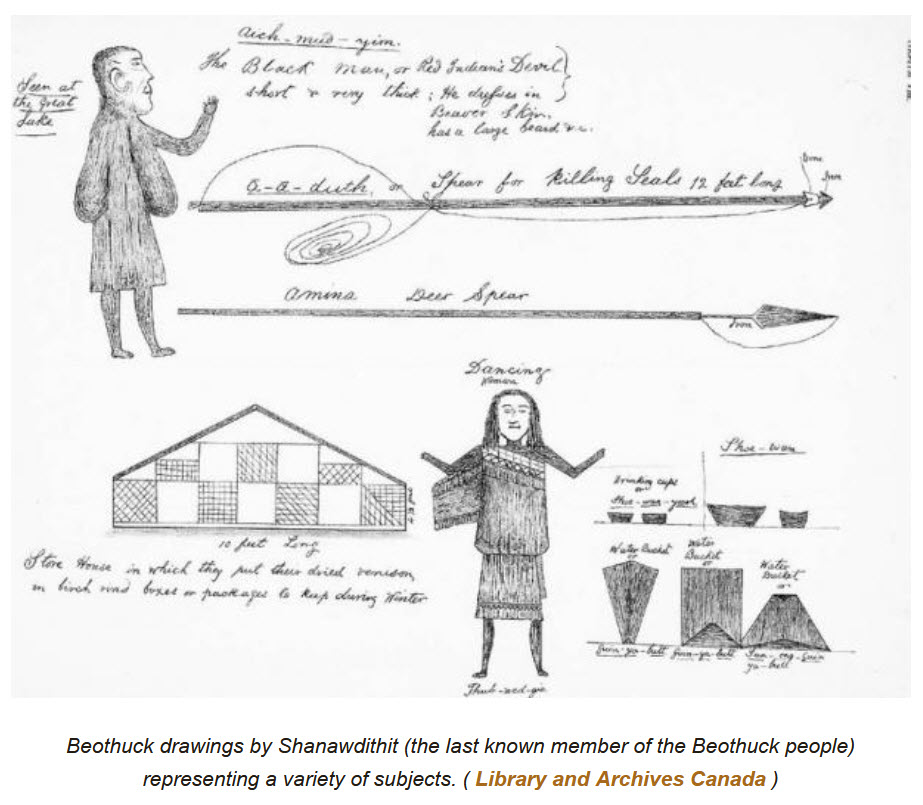 aich-mud-yim.
The Black Man, or Red Indian's Devil
short & very thick; He dresses in
Beaver Skin,
has a large beard &c.
Seen at
the Great
Lake
a-a-duth, or Spear for Killing Seals 12 feet long
Bone
Iron
amina Deer Spear
Iron
Dancing
Woman
Thub-wed-gie
10 feet Long
Store House in which they put their dried venison,
in birch rind boxes or packages to keep during Winter
Shoe-wan
Drinking cups
or
Shoe-wan-yeesh
Water Bucket
or
Guin-ya-butt
Water
Bucket
or
Guin-ya-butt
Water
Bucket
or
Sun-ong-guin
ya-butt
Beothuck drawings by Shanawdithit (the last known member of the Beothuck people)
representing a variety of subjects. ( Library and Archives Canada )